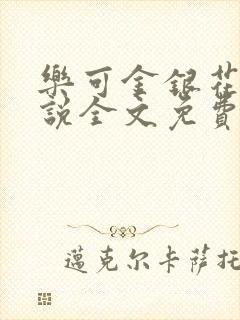 樂可金銀花
說全文免費
邁克尔卡薩托